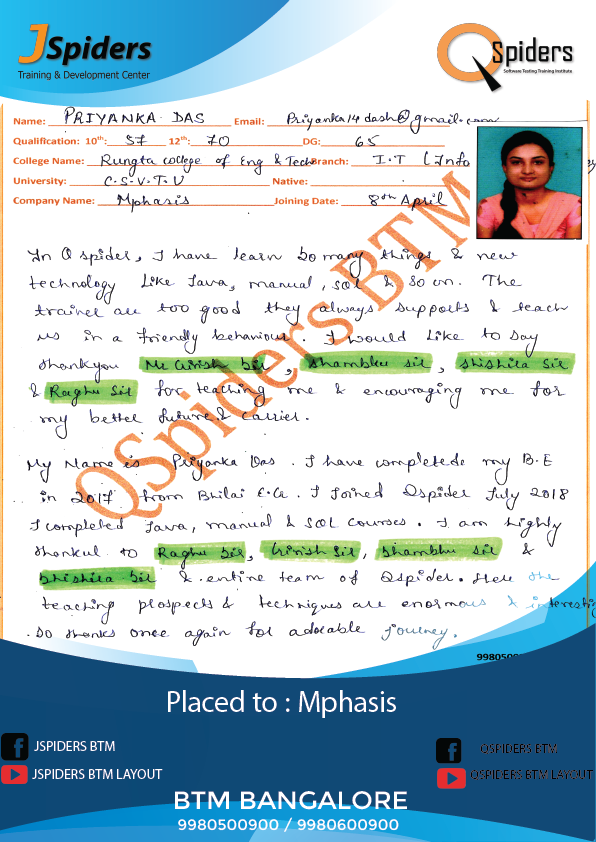 JSpiders
Training & Development Center
QSpiders
Software Testing Training Institute
Name: PRIYANKA DAS Email: Priyanka14dash@gmail.com
Qualification: 10th: 57 12th: 70 DG: 65
College Name: Rungta college of Eng & Tech Branch: I.T (Info
University: C.S.V.T.U Native:
Company Name: Mphasis Joining Date: 8th April
In Q spider, I have learn so many things & new
technology like Java, manual, SQL & so on. The
trainer are too good they always supports & teach
us in a friendly behaviour. I would like to say
thankyou Mr Girish Sir, Shambhu sir, Shishira Sir
& Raghu Sir for teaching me & encouraging me for
my better future & carrier.
My Name is Priyanka Das. I have completede my B.E
in 2017 from Bhilai E.G. I Joined Qspider July 2018
I completed Java, manual & SQL courses. I am highly
thankul to Raghu Sir, Girish Sir, Shambhu sir &
Shishira Sir & entire team of Qspider. Here the
teaching prospects & techniques are enormous & interesting
. So thanks once again for adorable journey.
QSpiders BTM
99805009
Placed to : Mphasis
JSPIDERS BTM
QSPIDERS BTM
JSPIDERS BTM LAYOUT
QSPIDERS BTM LAYOUT
BTM BANGALORE
9980500900 / 9980600900